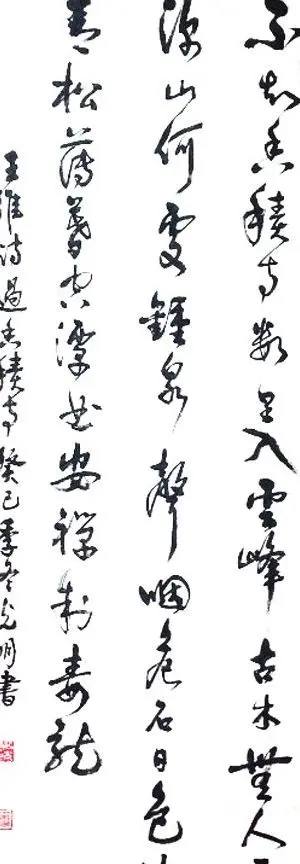 不知香積寺數里入雲峰古木無人
深山何處鐘泉聲咽危石日色
青松薄暮空潭曲安禪制毒龍
王維詩過香積寺癸巳季冬明書